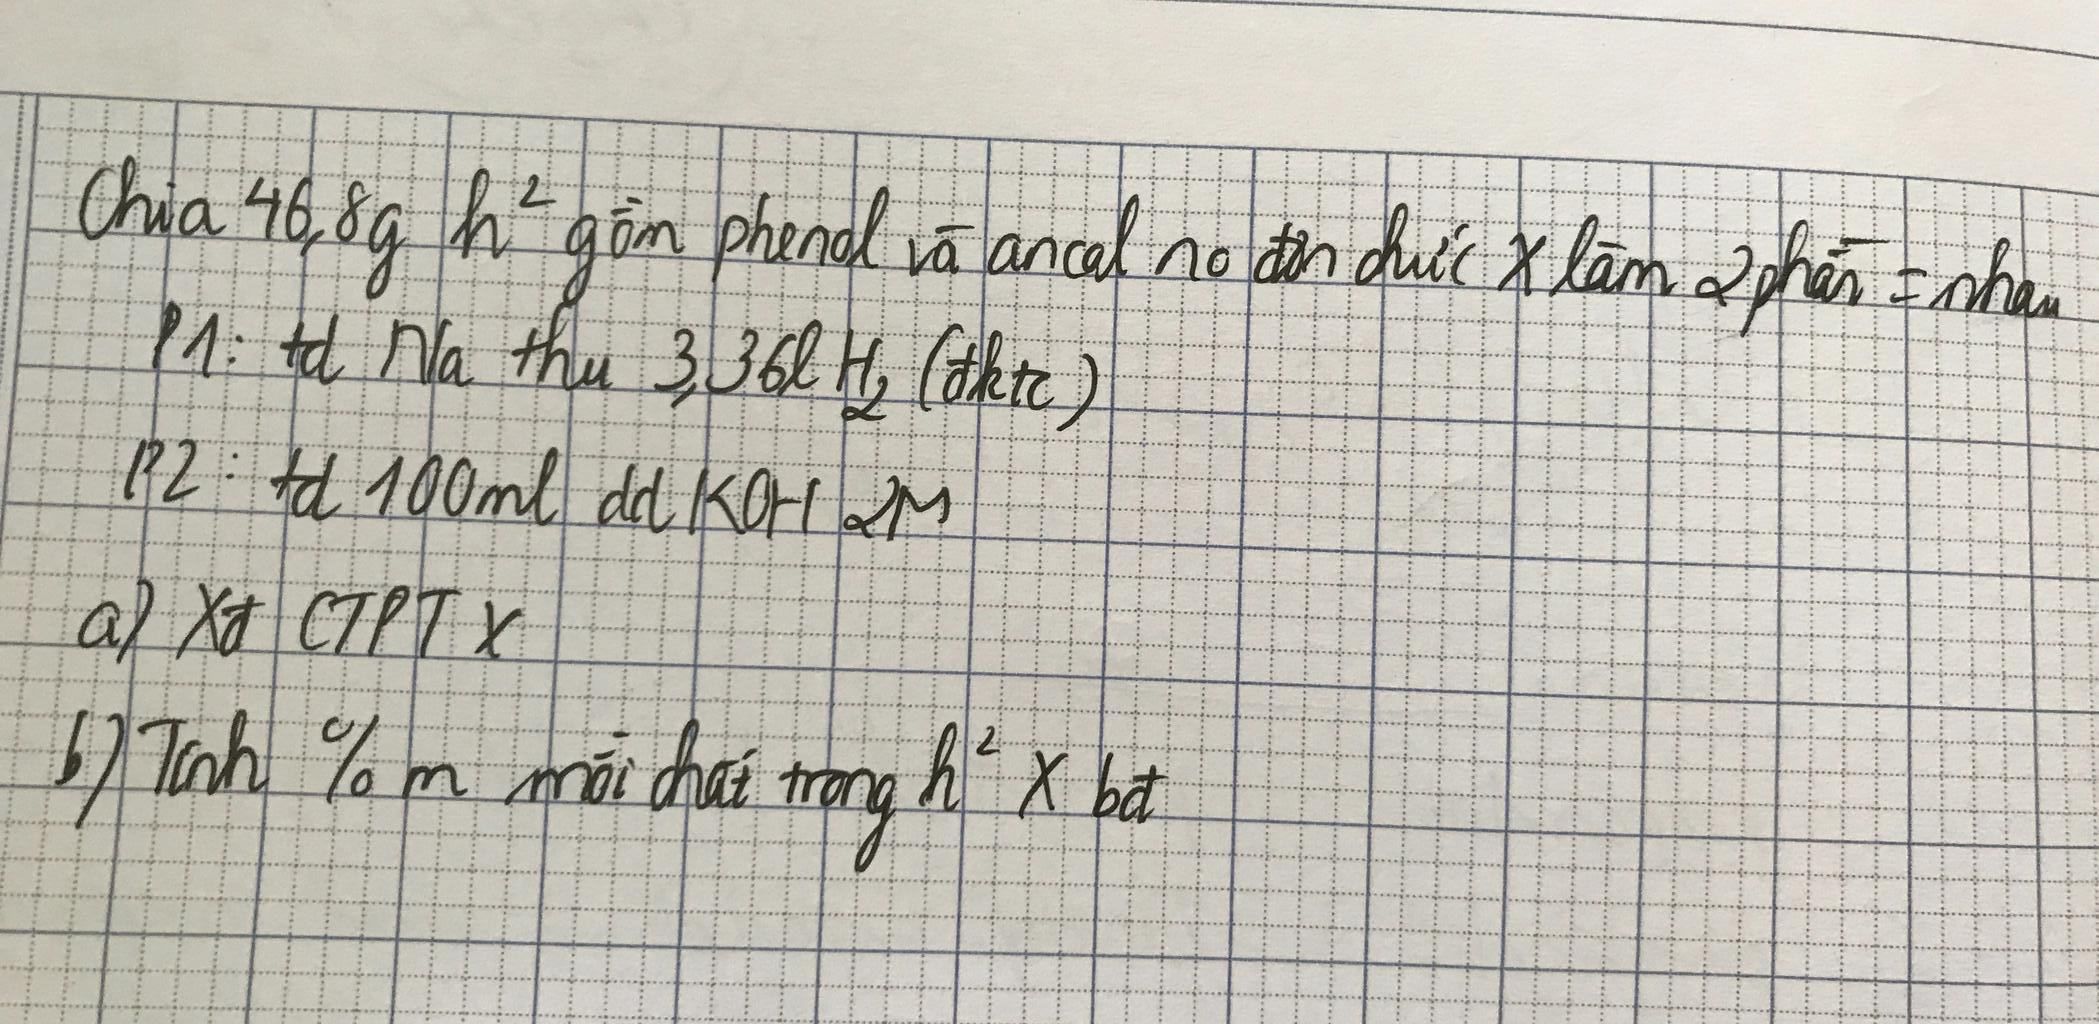 Chia 46,8g h² gồm phenol và ancol no đơn chức X làm 2 phần = nhau
P1: td Na thu 3,36l H₂ (đktc)
P2: td 100ml dd KOH 2M
a) Xđ CTPT X
b) Tính % m mỗi chất trong h² X bđ